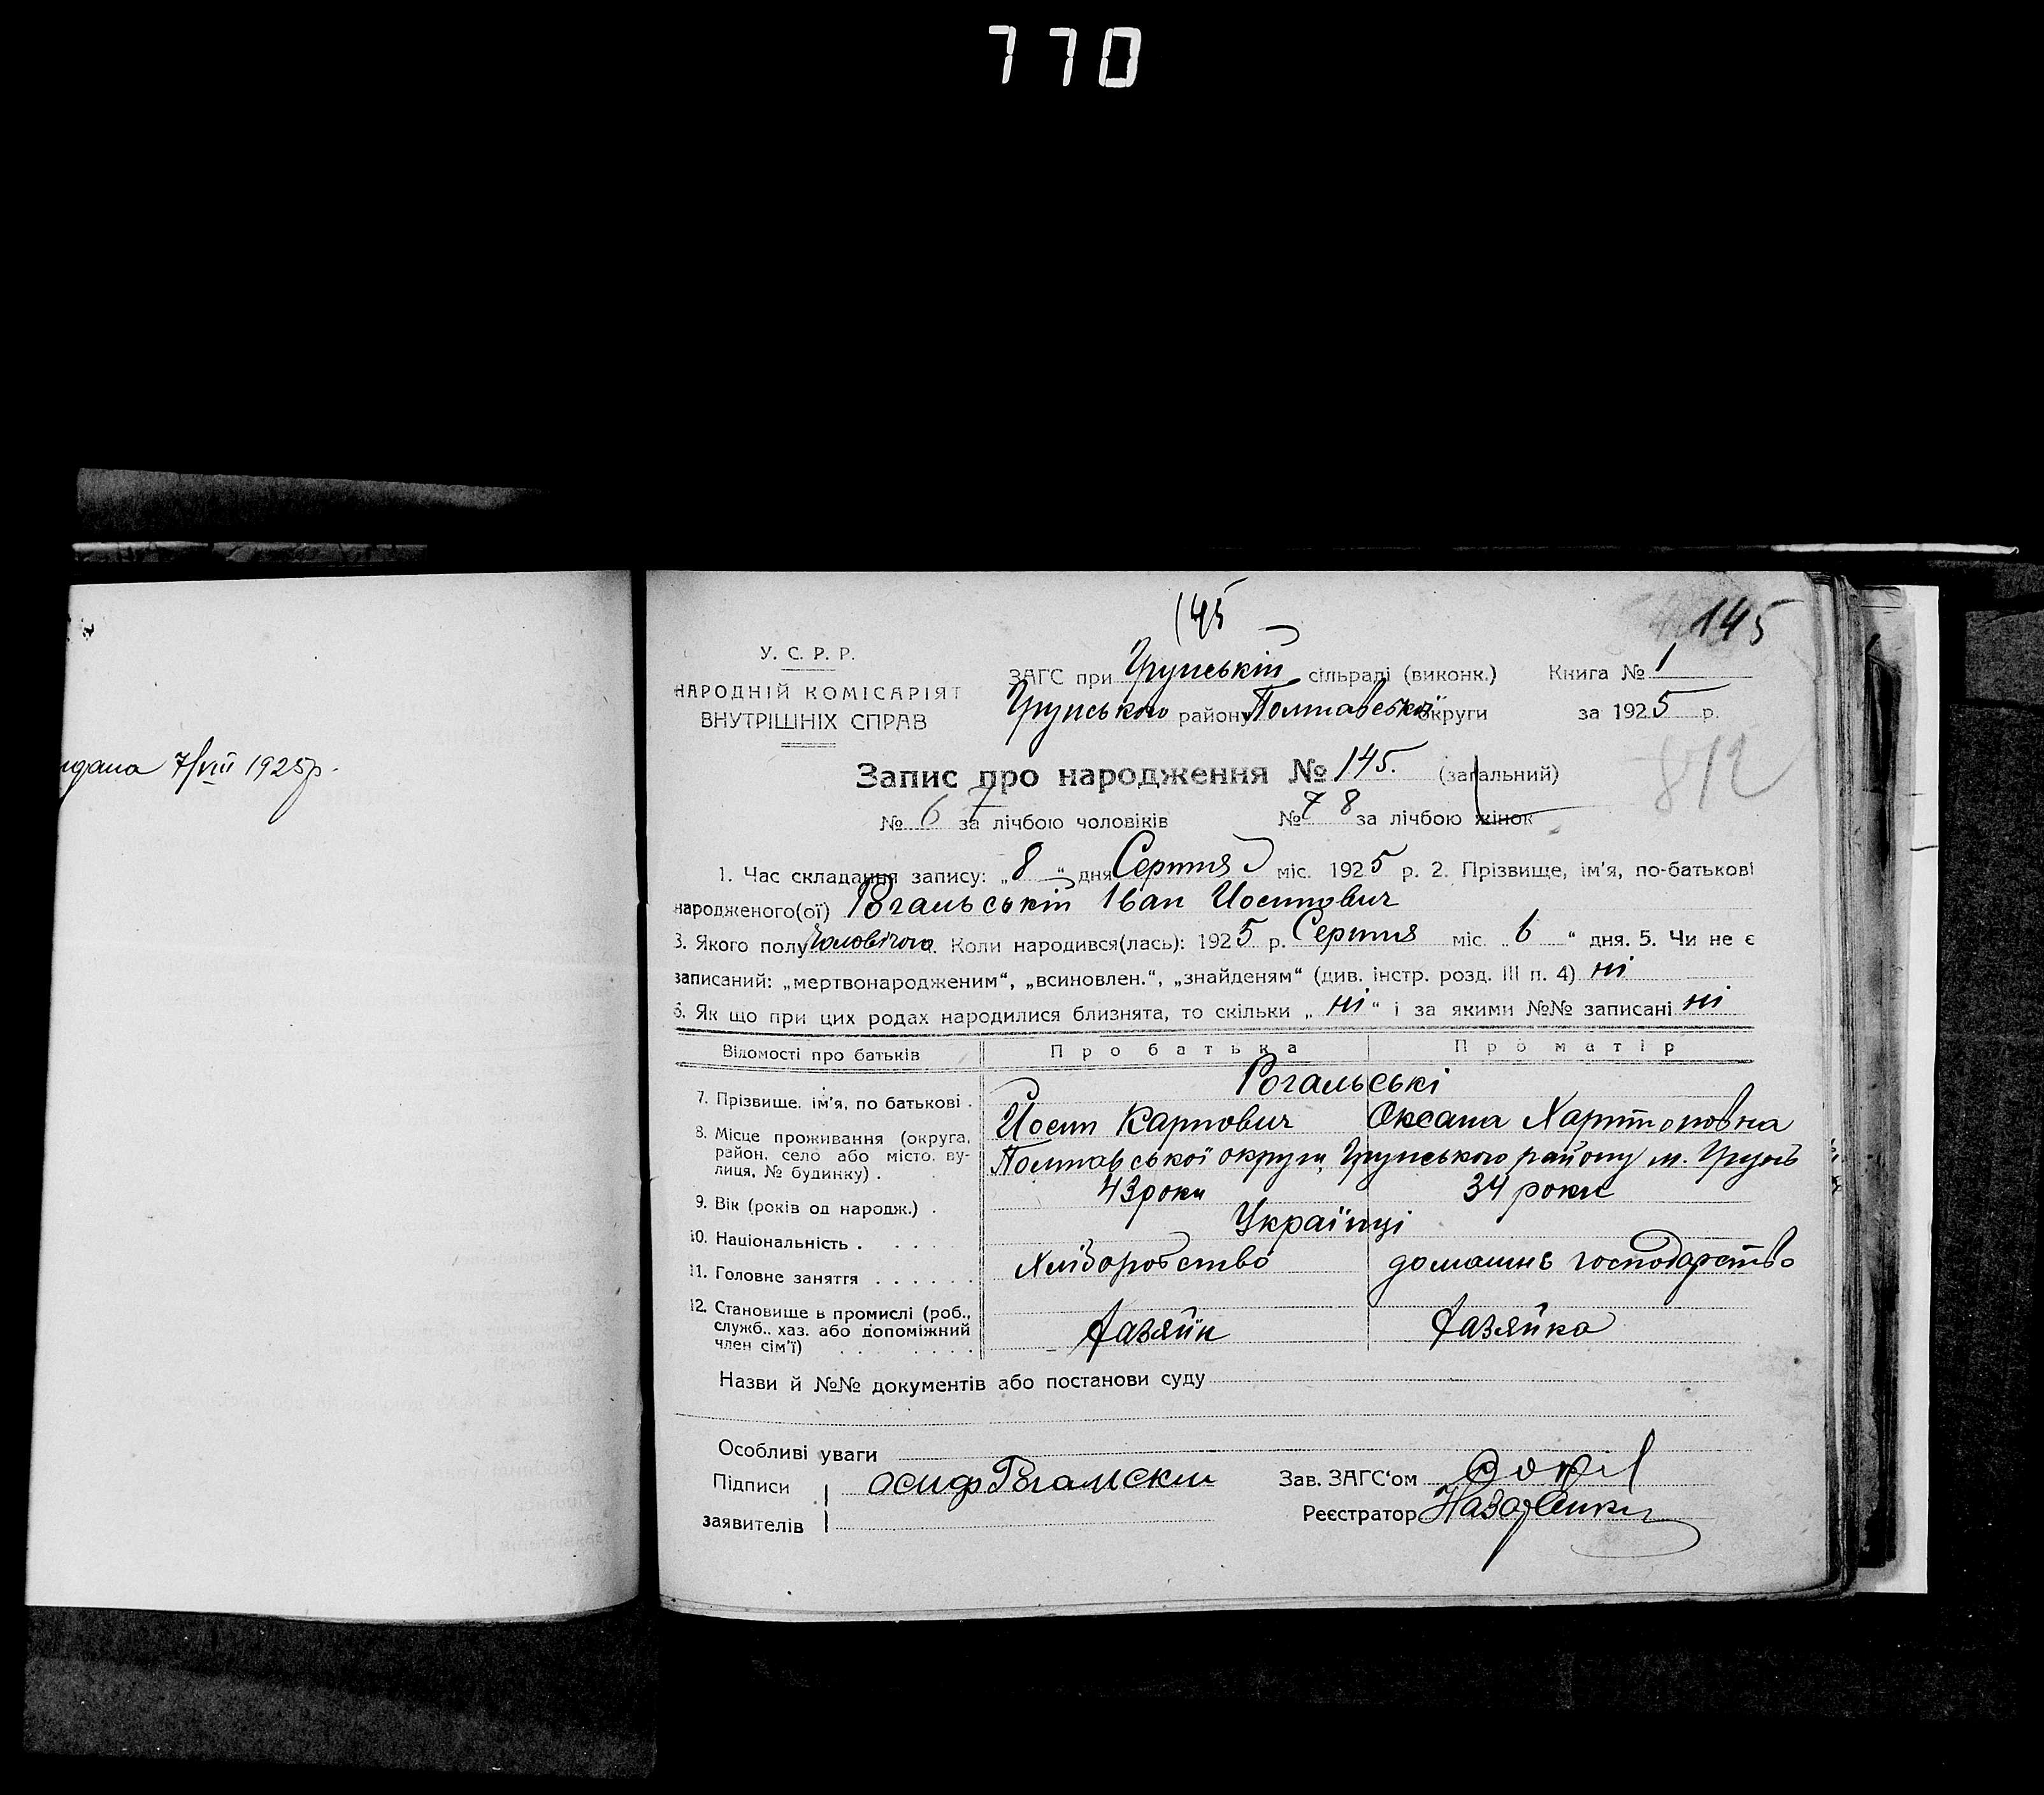 770
145
145
У. С. Р. Р.
НАРОДНІЙ КОМІСАРІЯТ
ВНУТРІШНІХ СПРАВ
ЗАГС при Грунській сільраді (виконк.) Книга № 1
Грунського району Полтавської округи за 1925 р.
идана 7/VIII 1925р.
Запис про народження № 145. (загальний)
872
№ 67 за лічбою чоловіків № 78 за лічбою жінок
1. Час складання запису: „8“ дня Серпня міс. 1925 р. 2. Прізвище, ім'я, по-батькові
народженого(ої) Рогальській Іван Иосипович
3. Якого полу Чоловічого. Коли народився(лась): 1925 р. Серпня міс. „6“ дня. 5. Чи не є
записаний: „мертвонародженим“, „всиновлен.“, „знайденям“ (див. інстр. розд. III п. 4) ні
6. Як що при цих родах народилися близнята, то скільки „ні“ і за якими №№ записані ні
Відомості про батьків Про батька Про матір
Рогальські
7. Прізвище, ім'я, по батькові . Иосип Карпович Оксана Харитоновна
8. Місце проживання (округа,
район, село або місто, ву-
лиця, № будинку) . Полтавської округи, Грунського району м. Грунь
9. Вік (років од народж.) . 43 роки 34 роки
10. Національність . . . Українці
11. Головне заняття . . . . . . Хліборобство домашнє господарство
12. Становище в промислі (роб.,
служб., хаз. або допоміжний
член сім'ї) . . . . . . . Хазяїн Хазяйка
Назви й №№ документів або постанови суду
Особливі уваги
Підписи осиф Рогалский Зав. ЗАГС'ом
заявителів Реєстратор Назаренко